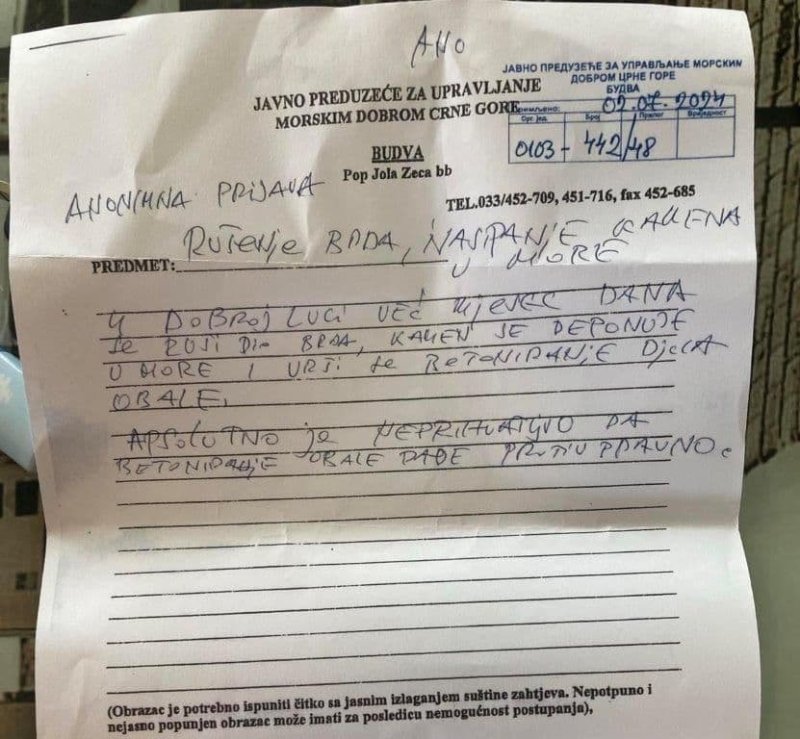 ANO
ЈАВНО ПРЕДУЗЕЋЕ ЗА УПРАВЉАЊЕ МОРСКИМ
ДОБРОМ ЦРНЕ ГОРЕ
БУДВА
JAVNO PREDUZEĆE ZA UPRAVLJANJE
MORSKIM DOBROM CRNE GORE
Примљено: 02.07.2024
Орг. јед. Број Прилог Вриједност
0103- 442/48
BUDVA
Pop Jola Zeca bb
ANONIMNA PRIJAVA
TEL.033/452-709, 451-716, fax 452-685
RUŠENJE BRDA, NASIPANJE KAMENA
PREDMET: U MORE
U DOBROJ LUCI VEĆ MJESEC DANA
SE RUŠI DIO BRDA, KAMEN SE DEPONUJE
U MORE I VRŠI SE BETONIRANJE DJELA
OBALE.
APSOLUTNO JE NEPRIHVATLJIVO DA
BETONIRANJE OBALE RADE PROTIV PRAVNO.
(Obrazac je potrebno ispuniti čitko sa jasnim izlaganjem suštine zahtjeva. Nepotpuno i
nejasno popunjen obrazac može imati za posledicu nemogućnost postupanja),